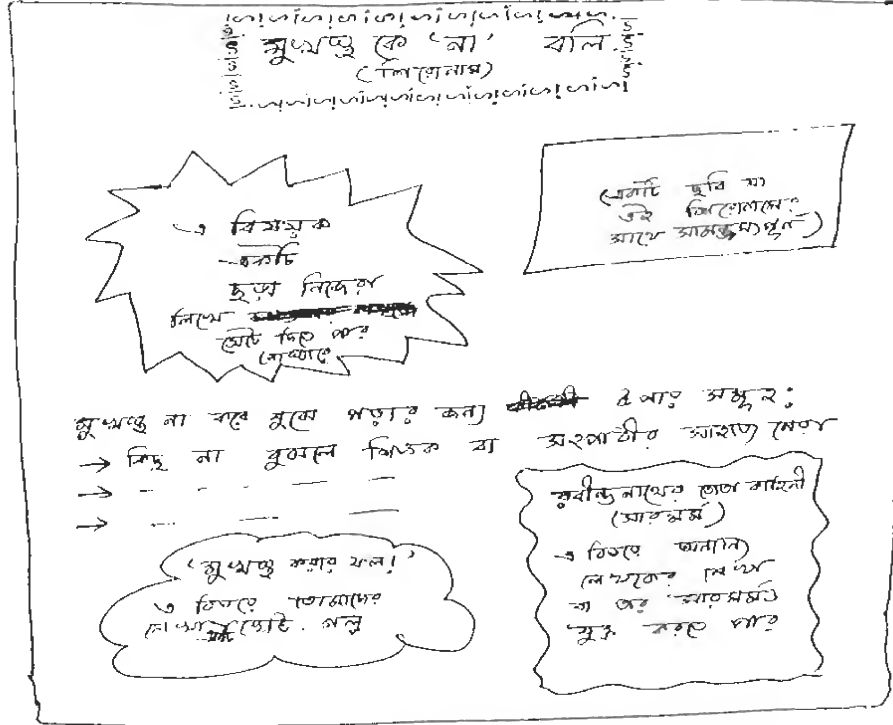 মুখস্থ কে 'না' বলি
(শিরোনাম)
এ বিষয়ক
একটি
ছড়া নিজেরা
লিখে
সেটে দিতে পার
পোস্টারে
(একটি ছবি যা
এই শিরোনামের
সাথে সামঞ্জস্যপূর্ণ)
মুখস্থ না করে বুঝে পড়ার জন্য উপায় সমূহ:
→ কিছু না বুঝলে শিক্ষক বা সহপাঠীর সাহায্য নেয়া
→ - - - —
→ - - - —
'মুখস্থ করার ফল!'
এ বিষয়ে তোমাদের
লেখা ছোট গল্প
রবীন্দ্রনাথের তোতা কাহিনী
(সারমর্ম)
এ বিষয়ে অন্যান্য
লেখকের লেখা
বা তার সারমর্মও
যুক্ত করতে পার